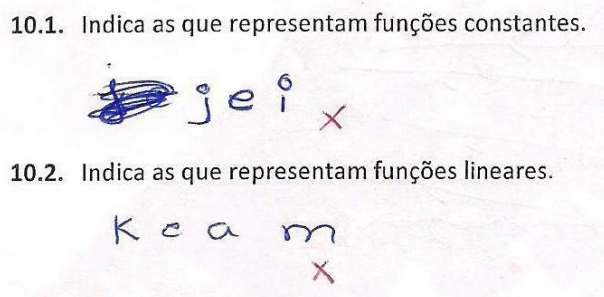 10.1. Indica as que representam funções constantes.
j e i X
10.2. Indica as que representam funções lineares.
K e a m
X